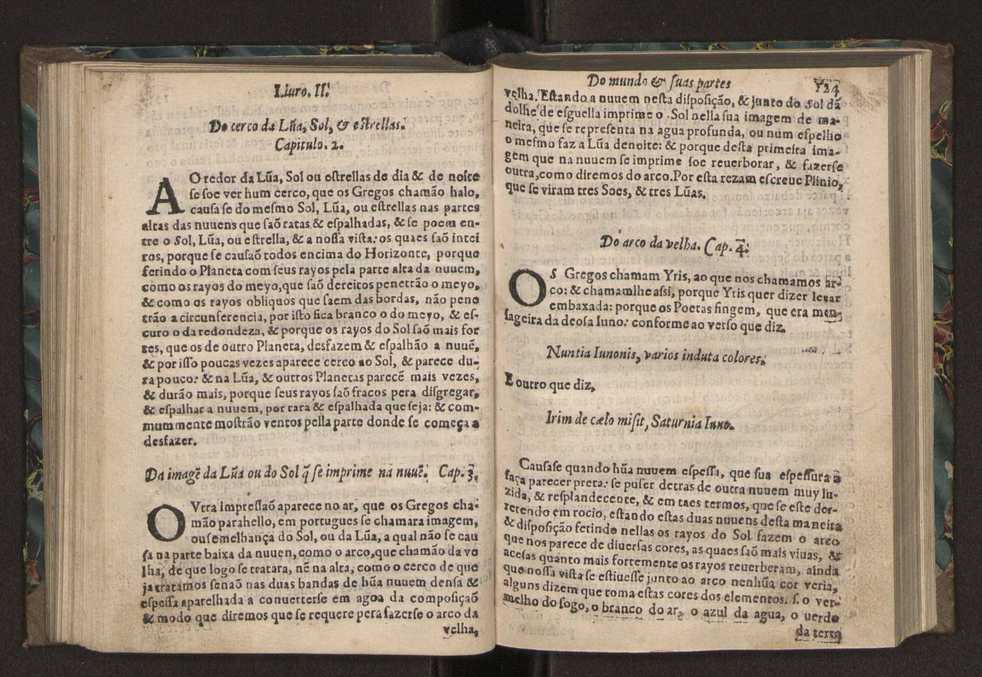 Liuro. II.
Do cerco da Lũa, Sol, & estrellas.
Capitulo. 2.
AO redor da Lũa, Sol ou estrellas de dia & de noite
se soe ver hum cerco, que os Gregos chamão halo,
causa se do mesmo Sol, Lũa, ou estrellas nas partes
altas das nuuens que saõ ratas & espalhadas, & se poem en-
tre o Sol, Lũa, ou estrella, & a nossa vista: os quaes saõ intei
ros, porque se causaõ todos encima do Horizonte, porque
ferindo o Planeta com seus rayos pela parte alta da nuuem,
como os rayos do meyo, que saõ dereitos penetrão o meyo,
& como os rayos obliquos que saem das bordas, não pene
trão a circunferencia, por isto fica branco o do meyo, & es-
curo o da redondeza, & porque os rayos do Sol saõ mais for
tes, que os de outro Planeta, desfazem & espalhão a nuuẽ,
& por isso poucas vezes aparece cerco ao Sol, & parece du-
ra pouco: & na Lũa, & outros Planetas parecẽ mais vezes,
& durão mais, porque seus rayos saõ fracos pera disgregar,
& espalhar a nuuem, por rara & espalhada que seja: & com-
mummente mostrão ventos pella parte donde se começa a
desfazer.
Da imagẽ da Lũa ou do Sol q̃ se imprime na nuuẽ. Cap. 3.
OVtra impressaõ aparece no ar, que os Gregos cha-
mão parahello, em portugues se chamara imagem,
ou semelhança do Sol, ou da Lũa, a qual não se cau
sa na parte baixa da nuuen, como o arco, que chamão da ve
lha, de que logo se tratara, nẽ na alta, como o cerco de que
ja tratamos senaõ nas duas bandas de hũa nuuem densa &
espessa aparelhada a conuerterse em agoa da composiçaõ
& modo que diremos que se requere pera fazerse o arco da
velha,
Do mundo & suas partes 124
velha. Estando a nuuem nesta disposição, & junto do Sol dã
dolhe de esguelha imprime o Sol nella sua imagem de ma-
neira, que se representa na agua profunda, ou num espelho
o mesmo faz a Lũa denoite: & porque desta primeira ima-
gem que na nuuem se imprime soe reuerborar, & fazerse
outra, como diremos do arco. Por esta rezam escreue Plinio,
que se viram tres Soes, & tres Lũas.
Do arco da velha. Cap. 4.
OS Gregos chamam Yris, ao que nos chamamos ar-
co: & chamamlhe assi, porque Yris quer dizer leuar
embaxada: porque os Poetas fingem, que era men-
sageira da deosa Iuno: conforme ao verso que diz.
Nuntia Iunonis, varios induta colores.
E outro que diz,
Irim de cælo misit, Saturnia Iuno.
Causase quando hũa nuuem espessa, que sua espessura a
faça parecer preta: se puser detras de outra nuuem muy lu-
zida, & resplandecente, & em taes termos, que se este der-
retendo em rocio, estando estas duas nuuens desta maneira
& disposição ferindo nellas os rayos do Sol fazem o arco
que nos parece de diuersas cores, as quaes saõ mais viuas, &
acesas quanto mais fortemente os rayos reuerberam, ainda
que nossa vista se estiuesse junto ao arco nenhũa cor veria,
alguns dizem que toma estas cores dos elementos. s. o ver-
melho do fogo, o branco do ar, o azul da agua, o uerde
da terra